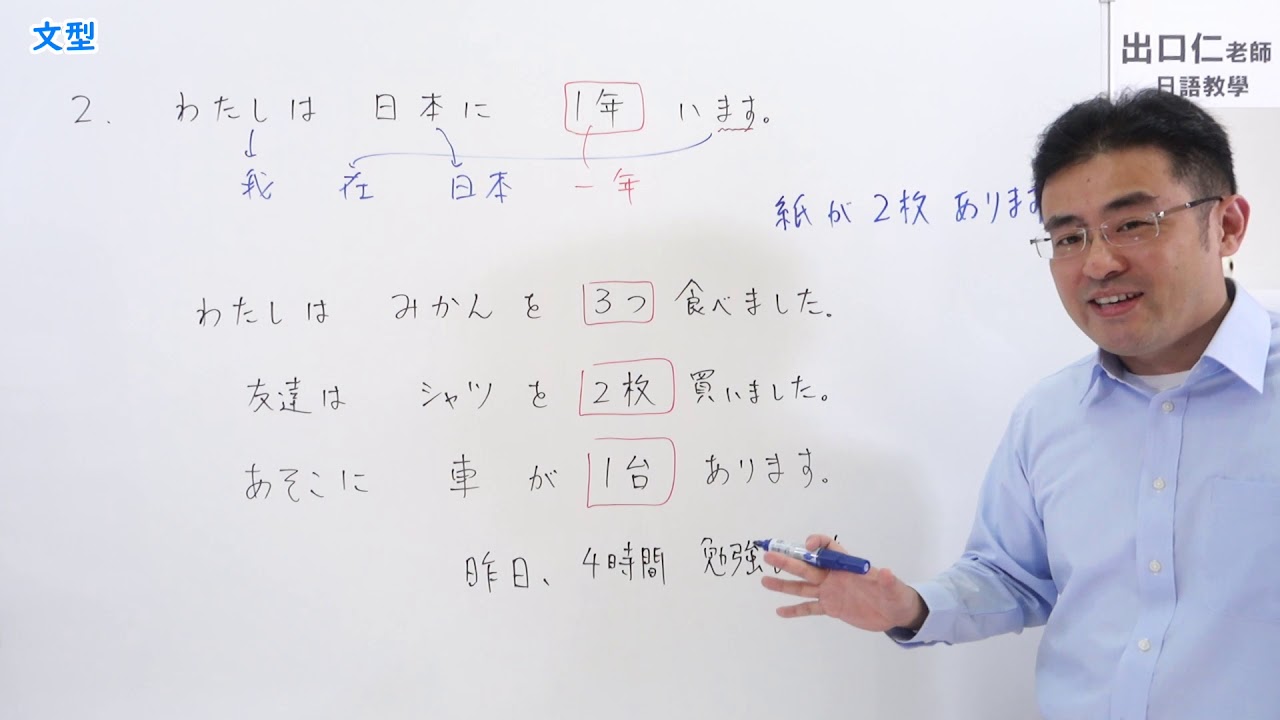 文型
出口仁老師
日語教學
2. わたしは 日本に 1年 います。
我 在 日本 一年
紙が 2枚 あります
わたしは みかんを 3つ 食べました。
友達は シャツを 2枚 買いました。
あそこに 車が 1台 あります。
昨日、4時間 勉強